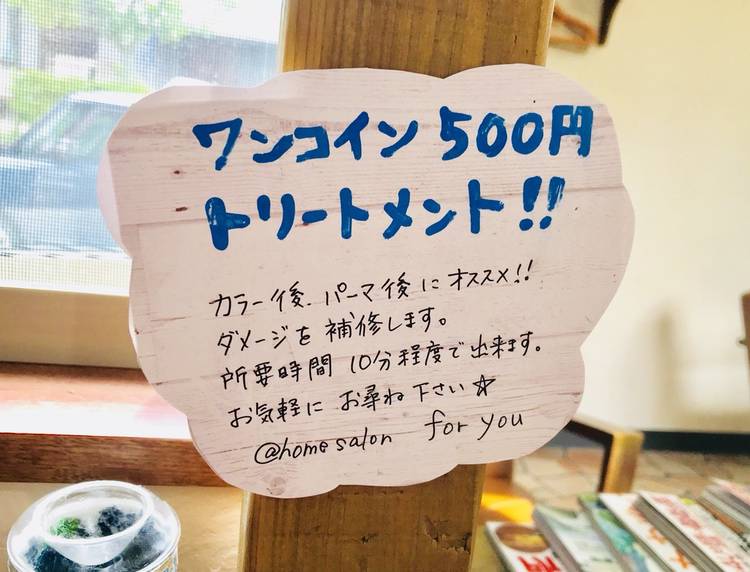 ワンコイン 500円
トリートメント!!
カラー後、パーマ後にオススメ!!
ダメージを補修します。
所要時間 10分程度で出来ます。
お気軽に お尋ね下さい☆
@home salon for you